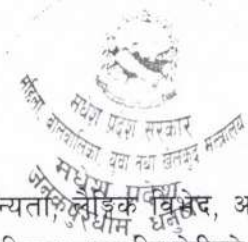 मधेश प्रदेश सरकार
महिला, बालबालिका, युवा तथा खेलकुद मन्त्रालय
मधेश प्रदेश
जनकपुरधाम, धनुषा
न्यता, लैङ्गिक विभेद, अ